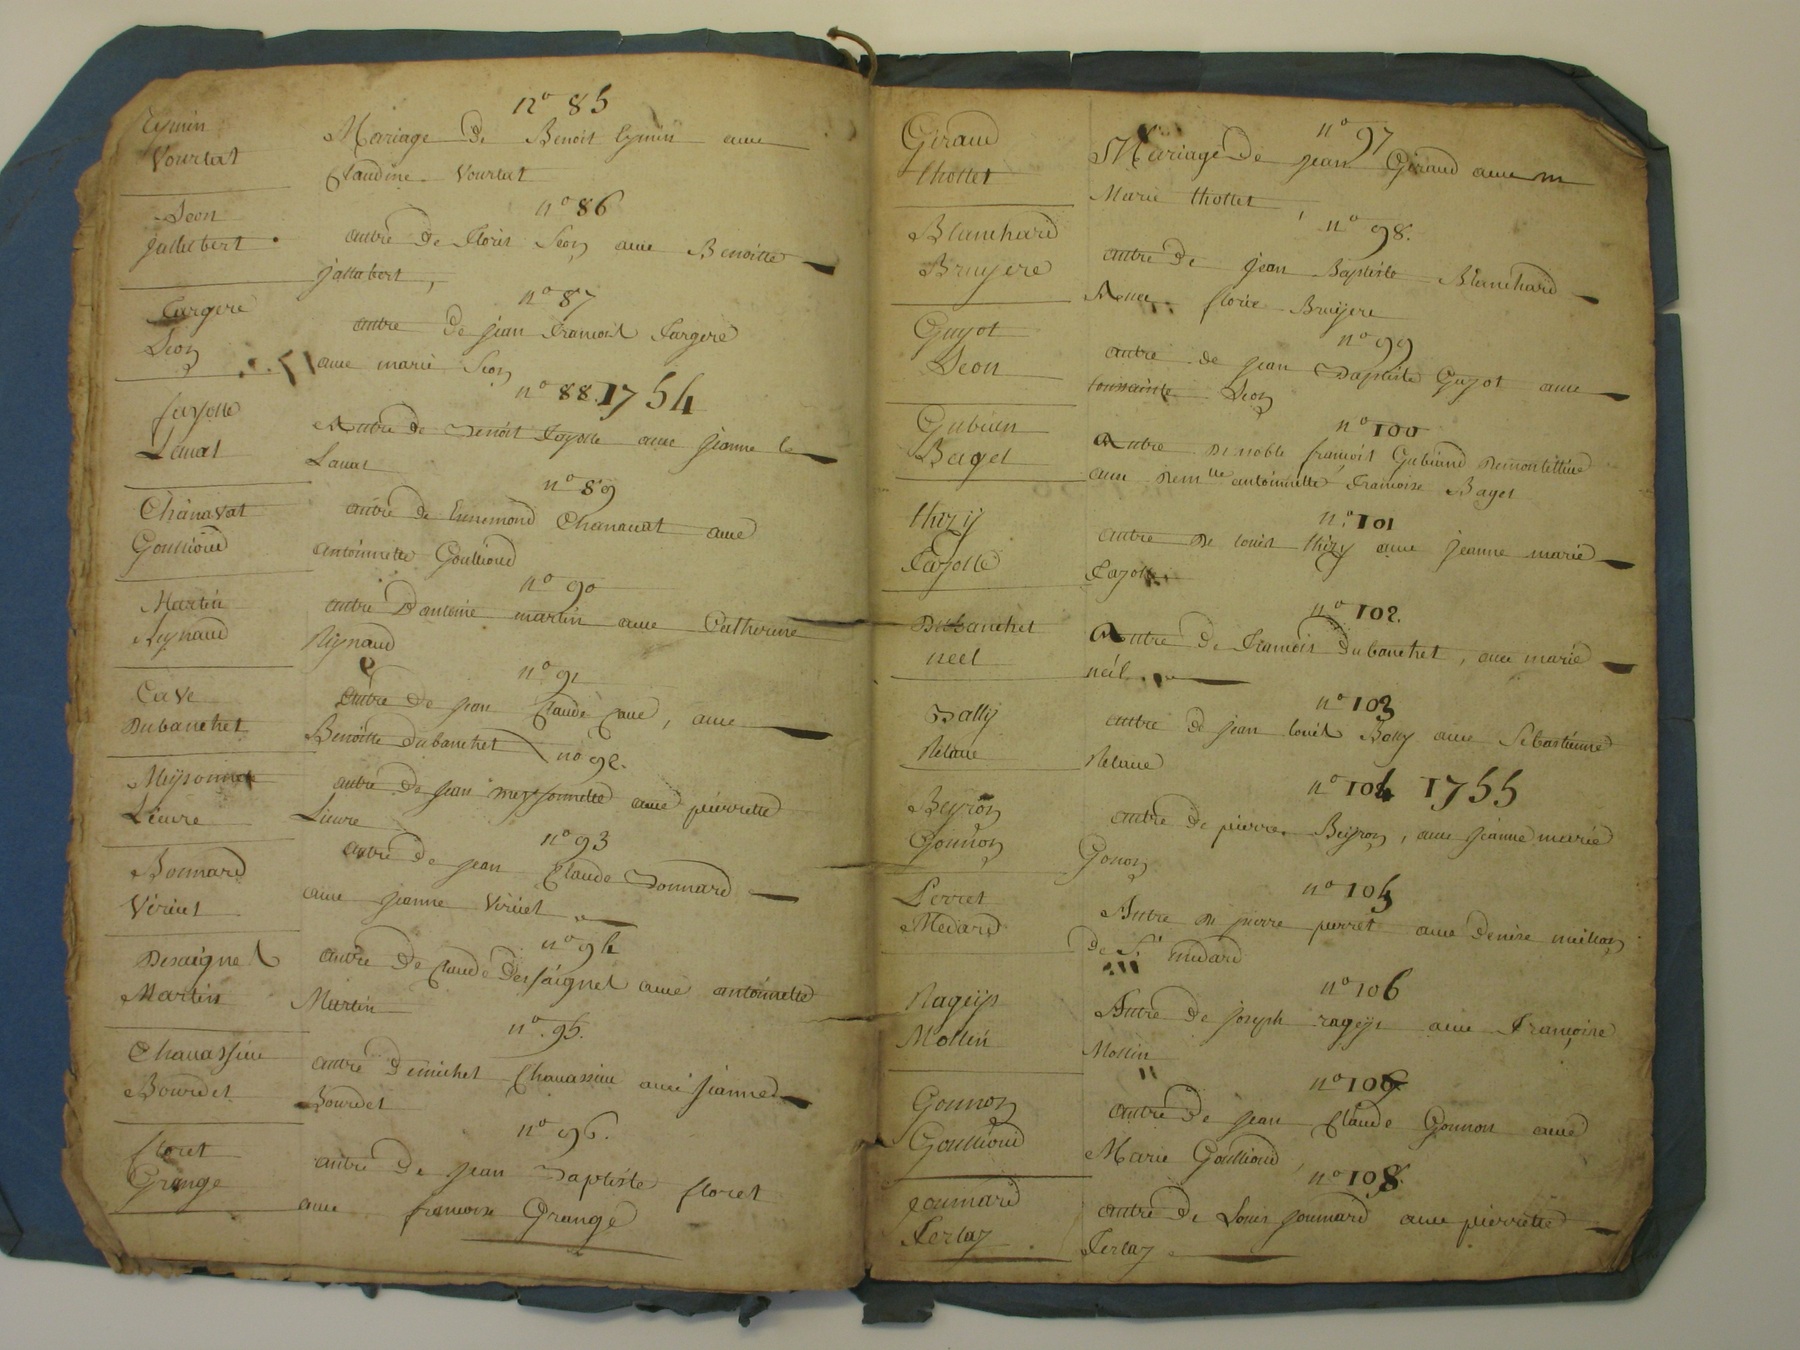 n° 85
Eymin
Vourlat
Mariage De Benoit Eymin avec
Claudine Vourlat
n° 86
Seon
Jallabert
autre De Floris Seon avec Benoitte
jallabert,
n° 87
Fargere
Seon
autre De jean francois Fargere
avec marie Seon
n° 88. 1754
fayolle
Laval
Autre De Benoit Fayolle avec jeanne
Laval
n° 89
Chanavat
Goullioud
autre De Ennemond Chanavat avec
antoinette Goullioud
n° 90
Martin
Reynaud
autre D antoine martin avec Catherine
Reynaud
n° 91
Cave
Dubanchet
autre De jean Claude Cave, avec
Benoitte dubanchet
n° 92.
Meysonnet
Lieuvre
autre De jean meyssonnette avec pierrette
Lieuvre
n° 93
Bonnard
Vericel
autre De jean Claude Bonnard
avec jeanne Vericel
n° 94
Desaignet
Martin
autre De Claude Dessaignet avec antoinette
Martin
n° 95.
Chavassieu
Bourdet
autre De michel Chavassieu avec jeanne
Bourdet
n° 96.
floret
Grange
autre De jean Baptiste floret
avec francoise Grange
n° 97
Giraud
thollet
Mariage De jean Giraud avec
Marie thollet
n° 98.
Blanchard
Bruyere
autre De jean Baptiste Blanchard
Avec florie Bruyere
n° 99
Guyot
Seon
autre de jean Baptiste Guyot avec
toussainte Seon
n° 100
Gubian
Baget
Autre De noble francois Gubiand
avec Dem.lle antoinette francoise Baget
n° 101
thizy
Fayolle
autre De louis thizy avec jeanne marie
Fayolle
n° 102.
Dubanchet
neel
Autre De francois Dubanchet, avec marie
néel
n° 103
Bally
Relave
autre De jean louis Bally avec Sebastienne
Relave
n° 104 1755
Beyron
Gonnon
autre De pierre Beyron, avec jeanne marie
Gonon
n° 105
Perret
Medard
Autre De pierre perret avec denise
De St. medard
n° 106
Rageys
Mollin
Autre De joseph rageys avec Francoise
Mollin
n° 106
Gonnon
Goullioud
autre De jean Claude Gonnon avec
Marie Goullioud
n° 108.
joumard
Ferlay
autre De Louis joumard avec pierrette
Ferlay